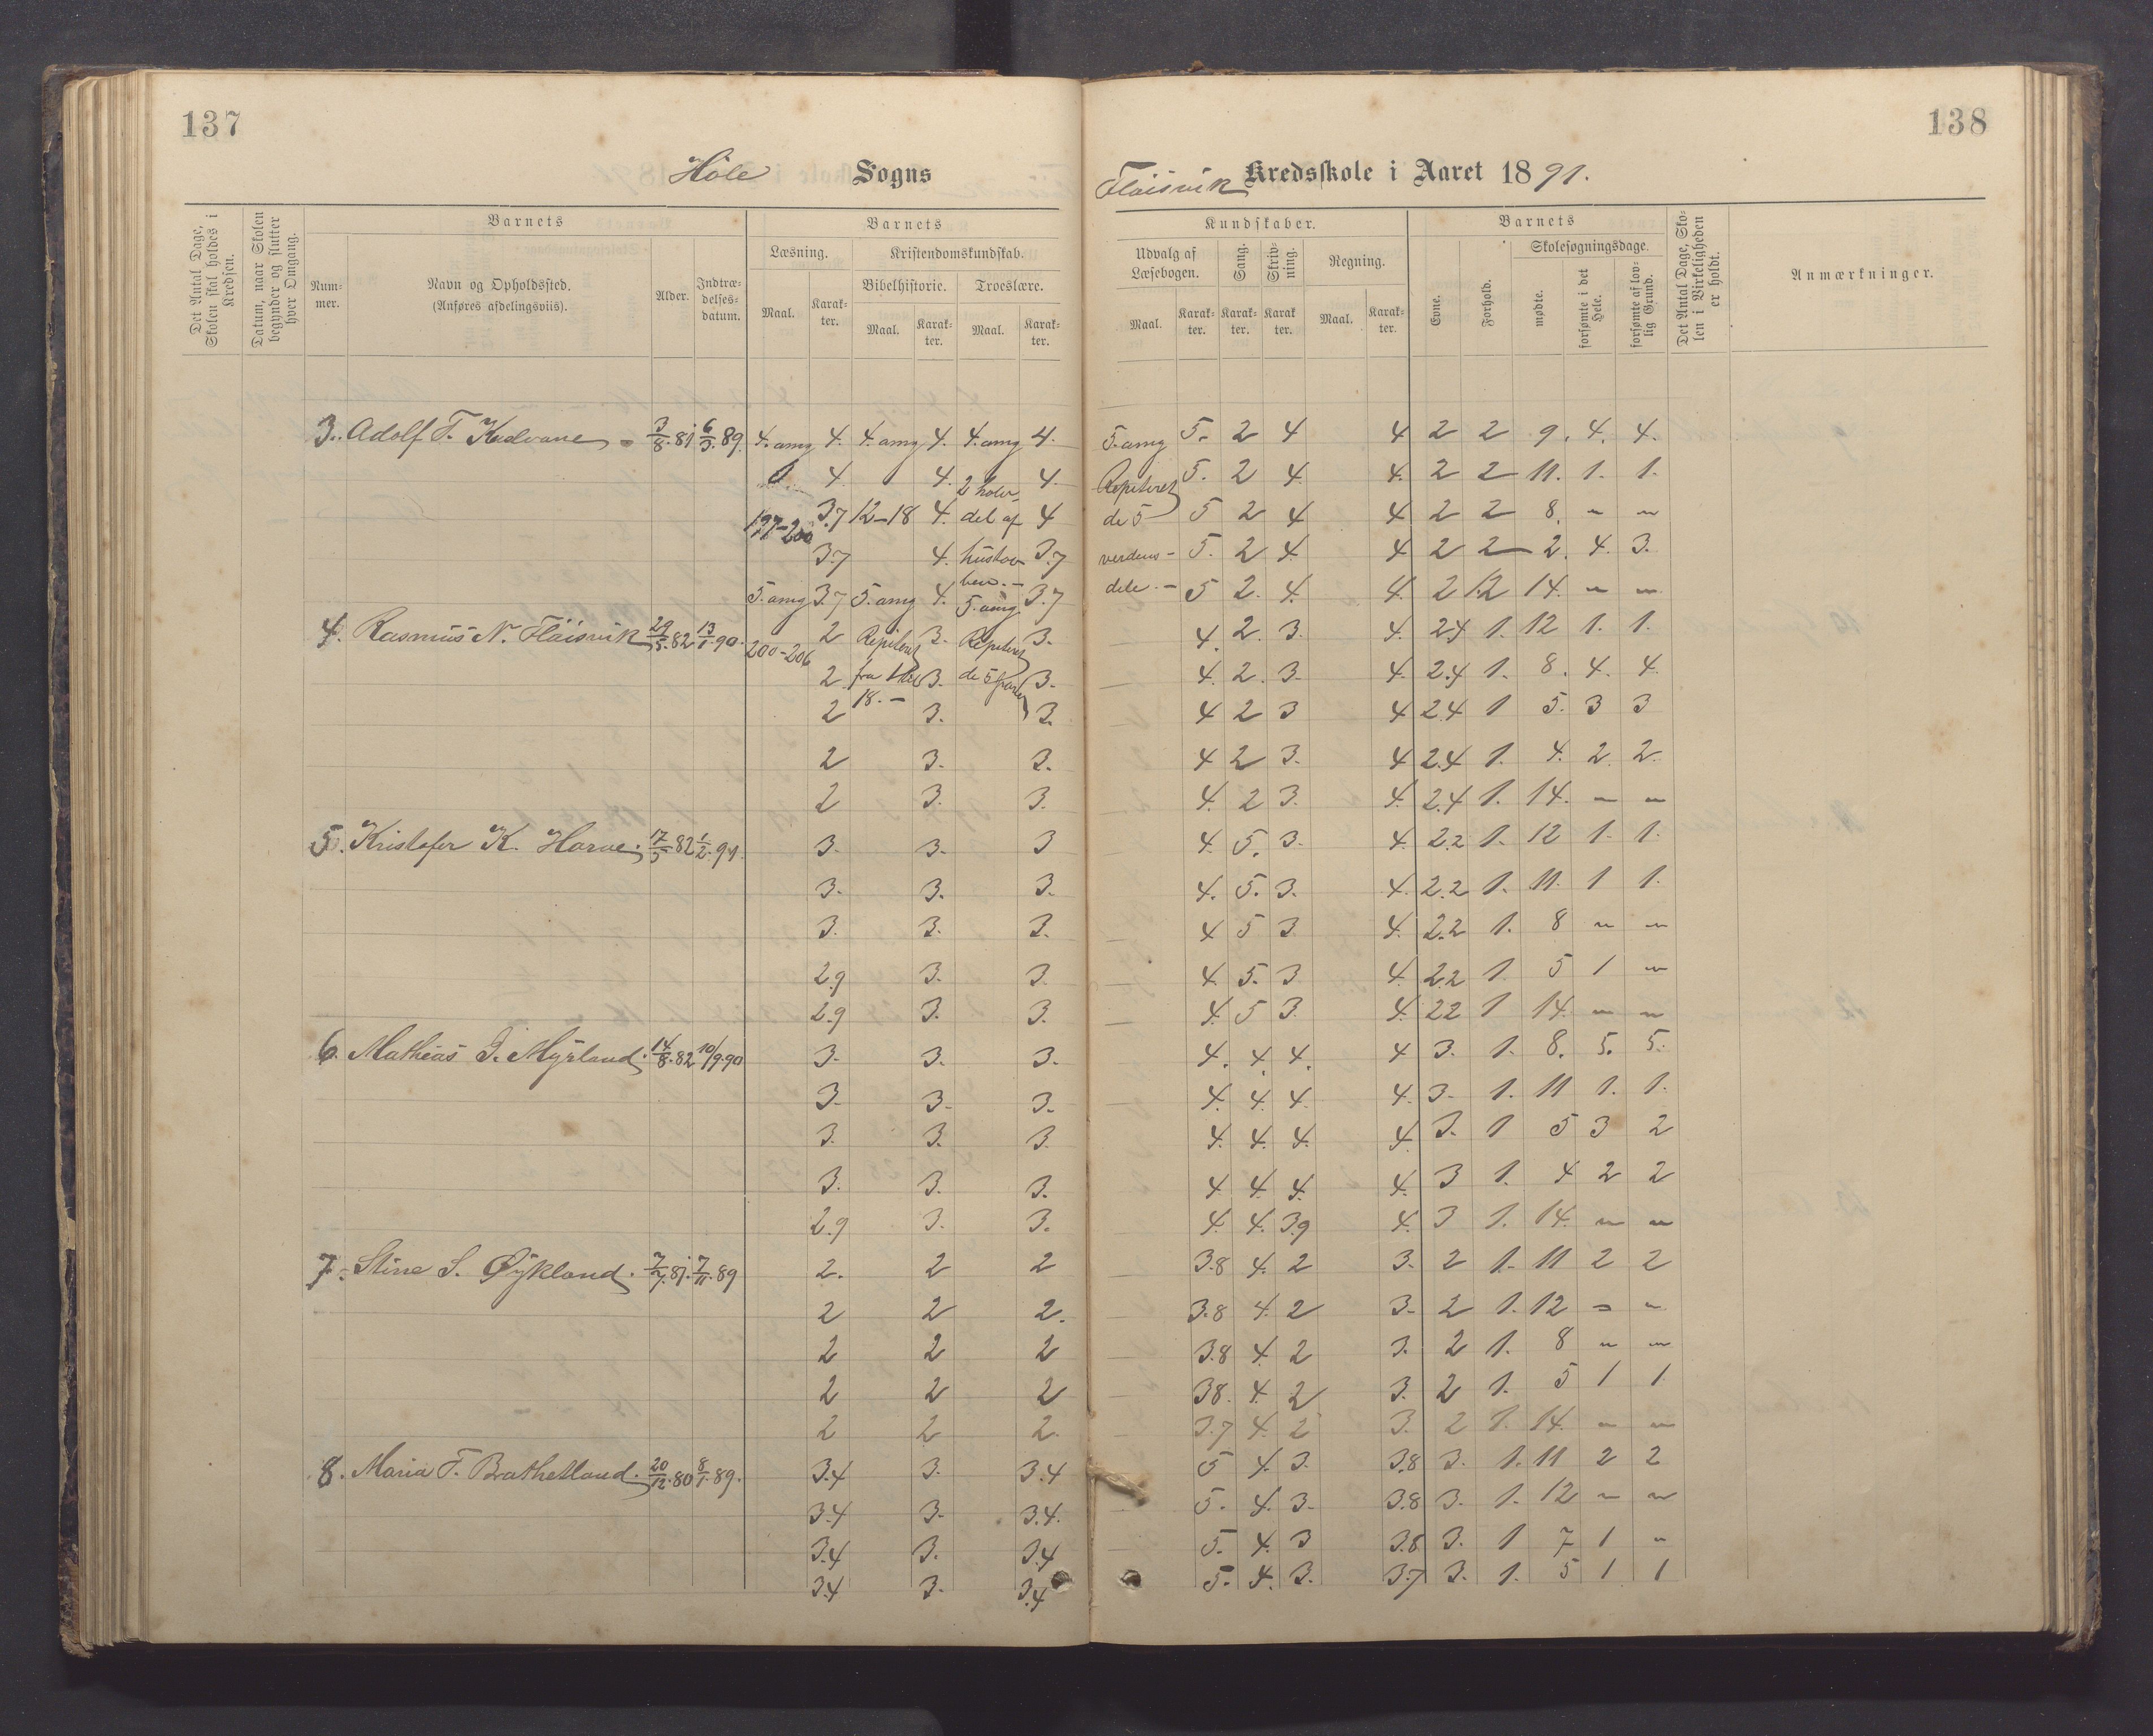 137
138
Höle Sogns
Flöisvik Kredsskole i Aaret 1891.
Det Antal Dage, Skolen skal holdes i Kredsen.
Datum, naar Skolen begynder og slutter hver Omgang.
Barnets
Num-mer.
Navn og Opholdssted.
(Anføres afdelingsviis).
Alder.
Indtræ-delses-datum.
Barnets
Læsning.
Kristendomskundskab.
Bibelhistorie. Troeslære.
Maal. Karak-ter. Maal. Karak-ter. Maal. Karak-ter.
Kundskaber.
Udvalg af Læsebogen. Sang. Skriv-ning. Regning.
Maal. Karak-ter. Karak-ter. Karak-ter. Maal. Karak-ter.
Barnets
Evne. Forhold.
Skolesøgningsdage.
mødte. forsømte i det Hele. forsømte af lov-lig Grund.
Det Antal Dage, Sko-len i Virkeligheden er holdt.
Anmærkninger.
3. Adolf T. 3/8.81 6/3.89. 4. omg 4. 4. omg 4. 4. omg 4. 5. omg 5. 2 4 4 2 2 9. 4. 4.
4. 4. 2 4. Repiteret 5. 2 4. 4. 2 2 11. 1. 1.
197-200 3.7 12-18 4. del af 4 de 5 5 2 4 4 2 2 8. " "
3.7 4. 3.7 verdens- 5. 2 4. 4 2 2 2. 4. 3.
5. omg 3.7 5. omg 4. 5. omg. 3.7 dele.- 5 2. 4. 4. 2 1.2 14. " "
4. Rasmus N. Flöisvik 29/5.82 13/1.90. 200-206 2 Repiteret 3. Repiteret 3. 4. 2. 3. 4. 2.4 1. 12 1. 1.
2. fra 3. de 5 parter 3. 4. 2. 3. 4. 2.4 1. 8. 4. 4.
2 18.- 3. 3. 4 2 3 4 2.4 1 5. 3 3
2 3. 3. 4 2 3. 4 2.4 1. 4. 2. 2.
2 3. 3. 4. 2 3. 4. 2.4 1. 14. " "
5. Kristofer K. Horve. 17/5.82 1/2.91. 3. 3. 3 4. 5. 3. 4. 2.2 1. 12 1. 1.
3. 3. 3. 4. 5. 3. 4. 2.2 1. 11. 1 1.
3. 3. 3. 4 5 3 4. 2.2 1. 8 " "
2.9 3. 3. 4. 5. 3 4. 2.2 1. 5 1 "
2.9 3. 3. 4. 5 3. 4. 2.2 1 14. " "
6. Mathias I. Myrland. 14/8.82 10/9.90 3. 3. 3. 4. 4. 4. 4 3. 1. 8. 5. 5.
3. 3. 3. 4. 4. 4. 4. 3. 1. 11 1. 1.
3. 3. 3. 4. 4. 4. 4. 3. 1 5 3 2
3. 3. 3. 4. 4. 4. 4. 3 1. 4 2 2
2.9 3. 3. 4. 4. 3.9 4. 3 1. 14. " "
7. Stine S. Øykland. 7/7.81. 7/11.89 2. 2 2 3.8 4. 2 3. 2 1. 11 2 2
2 2 2. 3.8 4. 2 3. 2 1. 12 " "
2 2 2 3.8 4. 2 3. 2 1. 8 " "
2 2 2 3.8. 4. 2 3. 2 1. 5 1 1
2 2 2. 3.7 4. 2 3. 2 1. 14. " "
8. Maria T. Brathetland. 20/12.80 8/1.89. 3.4 3. 3.4 5 4. 3. 3.8 3. 1. 11 2 2
3.4 3. 3.4. 5. 4. 3. 3.8 3. 1. 12 " "
3.4 3. 3.4 5. 4. 3 3.8 3. 1 7 1 "
3.4 3. 3.4 5. 4. 3. 3.7 3. 1. 5 1 1